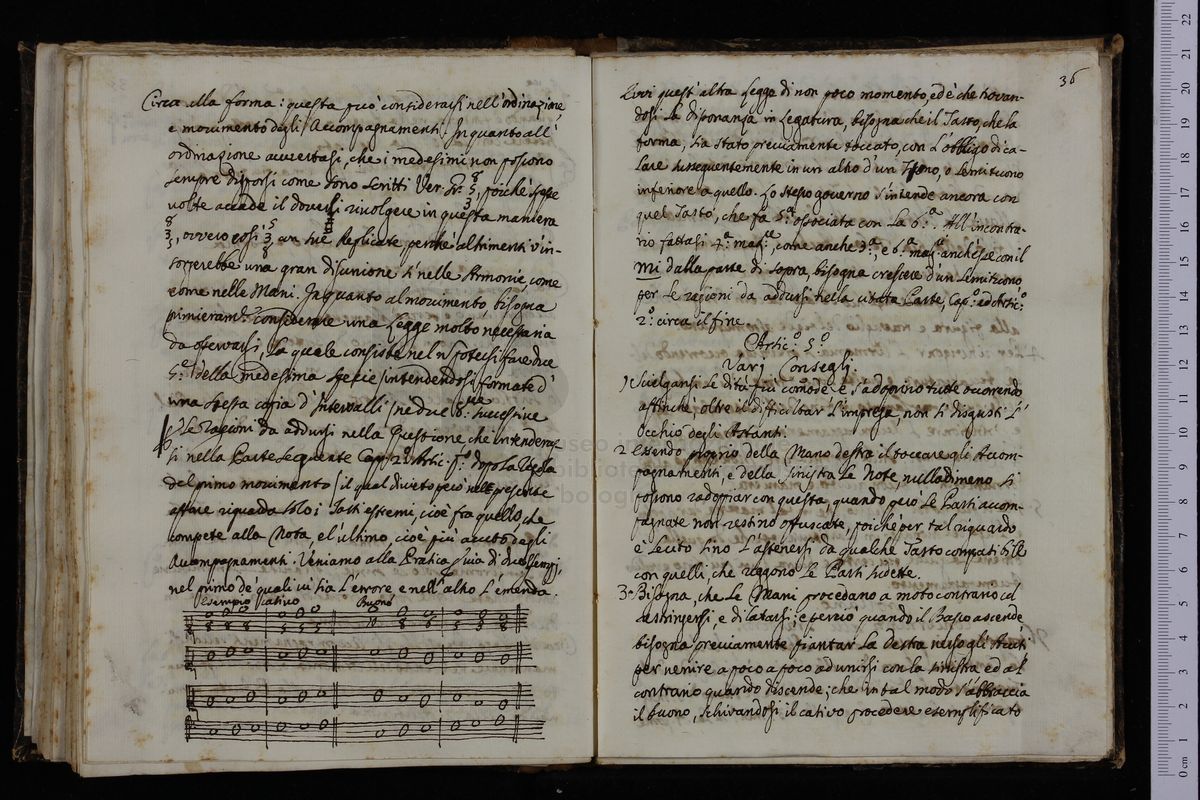 Circa alla forma: questa può considerarsi nell'ordinazione,
e movimento degli Accompagnamenti. In quanto all'
ordinazione avvertasi, che i medesimi non possono
sempre disporsi come sono scritti 8 5 3, poiche spesse
volte accade il doversi rivolgere in questa maniera
8 3 5, ovvero così 5 3 8 con sue Replicate perché altrimenti v'in-
sorgerebbe una gran disunione sì nelle Armonie, come
come nelle Mani. In quanto al movimento, bisogna
primieram.e considerare una Legge molto necessaria
da osservarsi, la quale consiste nel n fare due
5.e della medesima specie (intendendosi formate d'
una stessa copia d'Intervalli) ne due 8.ve successive
Le ragioni da addursi nella Questione che intenderas-
si nella Parte seguente Cap. 2.o Artic. p.o dopo la Regola
del primo movimento (il qual divieto però nel presente
affare riguarda solo i Tasti estremi, cioè fra quello che
compete alla Nota, e l'ultimo, cioè più acuto degli
Accompagnamenti. Veniamo alla Pratica di due Essempj,
nel primo de quali vi sia L'errore, e nell'altro L'emenda.
Esempio cativo Buono
36
Evvi quest'altra Legge di non poco momento, ed è che trovan-
dosi la disonanza in Legatura, bisogna che il Tasto, che la
forma, sia stato previamente toccato, con L'obbligo di ca-
lare susseguentemente in un altro d'un Tono, o Semituono
inferiore a quello. Lo stesso governo s'intende ancora con
quel Tasto, che fa 5.a associata con La 6.a. All'incontra-
rio fattasi 4.a mag.e, come anche 3.a, e 6.a mag.e anch'esse con il
mi dalla parte di sopra, bisogna crescere d'un Semituono
per Le ragioni da addursi nella citata Parte, Cap.o ed Artic.o
2.o circa il fine.
Artic.o 5.o
Varj Consegli.
1 Scielgansi Le dita più comode e s'adoprino tutte occorrendo
affinché oltre il difficultar L'impresa, non si disgusti L'
Occhio degli Astanti.
2 Essendo proprio della Mano destra il toccare gli Accom-
pagnamenti, e della sinistra Le Note, nulladimeno si
possono radoppiar con questa, quando però Le Parti accom-
pagnate non restino offuscate, poiche per tal riguardo
è Lecito sino L'astenersi da qualche Tasto compatibile
con quelli, che reggono Le Parti sudette.
3 Bisogna, che Le Mani procedano a moto contrario ad
restringersi, e dilatarsi; e perciò quando il Basso ascende
bisogna previamente piantar La destra verso gli Acuti
per venire a poco a poco ad unirsi con la sinistra ed al
contrario quando discende; che in tal modo s'abbraccia
il buono, schivandosi il cativo procedere esemplificato